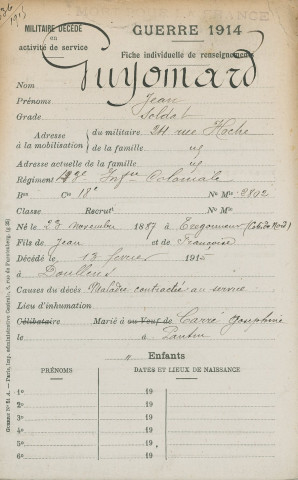 MILITAIRE DÉCÉDÉ
en
activité de service
GUERRE 1914
Fiche individuelle de renseignements
Nom Guyomard
Prénoms Jean
Grade Soldat
Adresse à la mobilisation du militaire 24 rue Hoche
de la famille
Adresse actuelle de la famille
Régiment 23e Inf ie Coloniale
Bon Cie 11e No Mle 2802
Classe Recrut No Mle
Né le 23 novembre 1887 à (Côtes du Nord)
Fils de Jean et de Françoise
Décédé le 13 février 1915
à Doullens
Causes du décès Maladie contractée au service
Lieu d'inhumation
Célibataire Marié à ou Veuf de Carré Joséphine
le à Pantin
Enfants
PRÉNOMS DATES ET LIEUX DE NAISSANCE
1o 19
2o 19
3o 19
4o 19
5o 19
6o 19